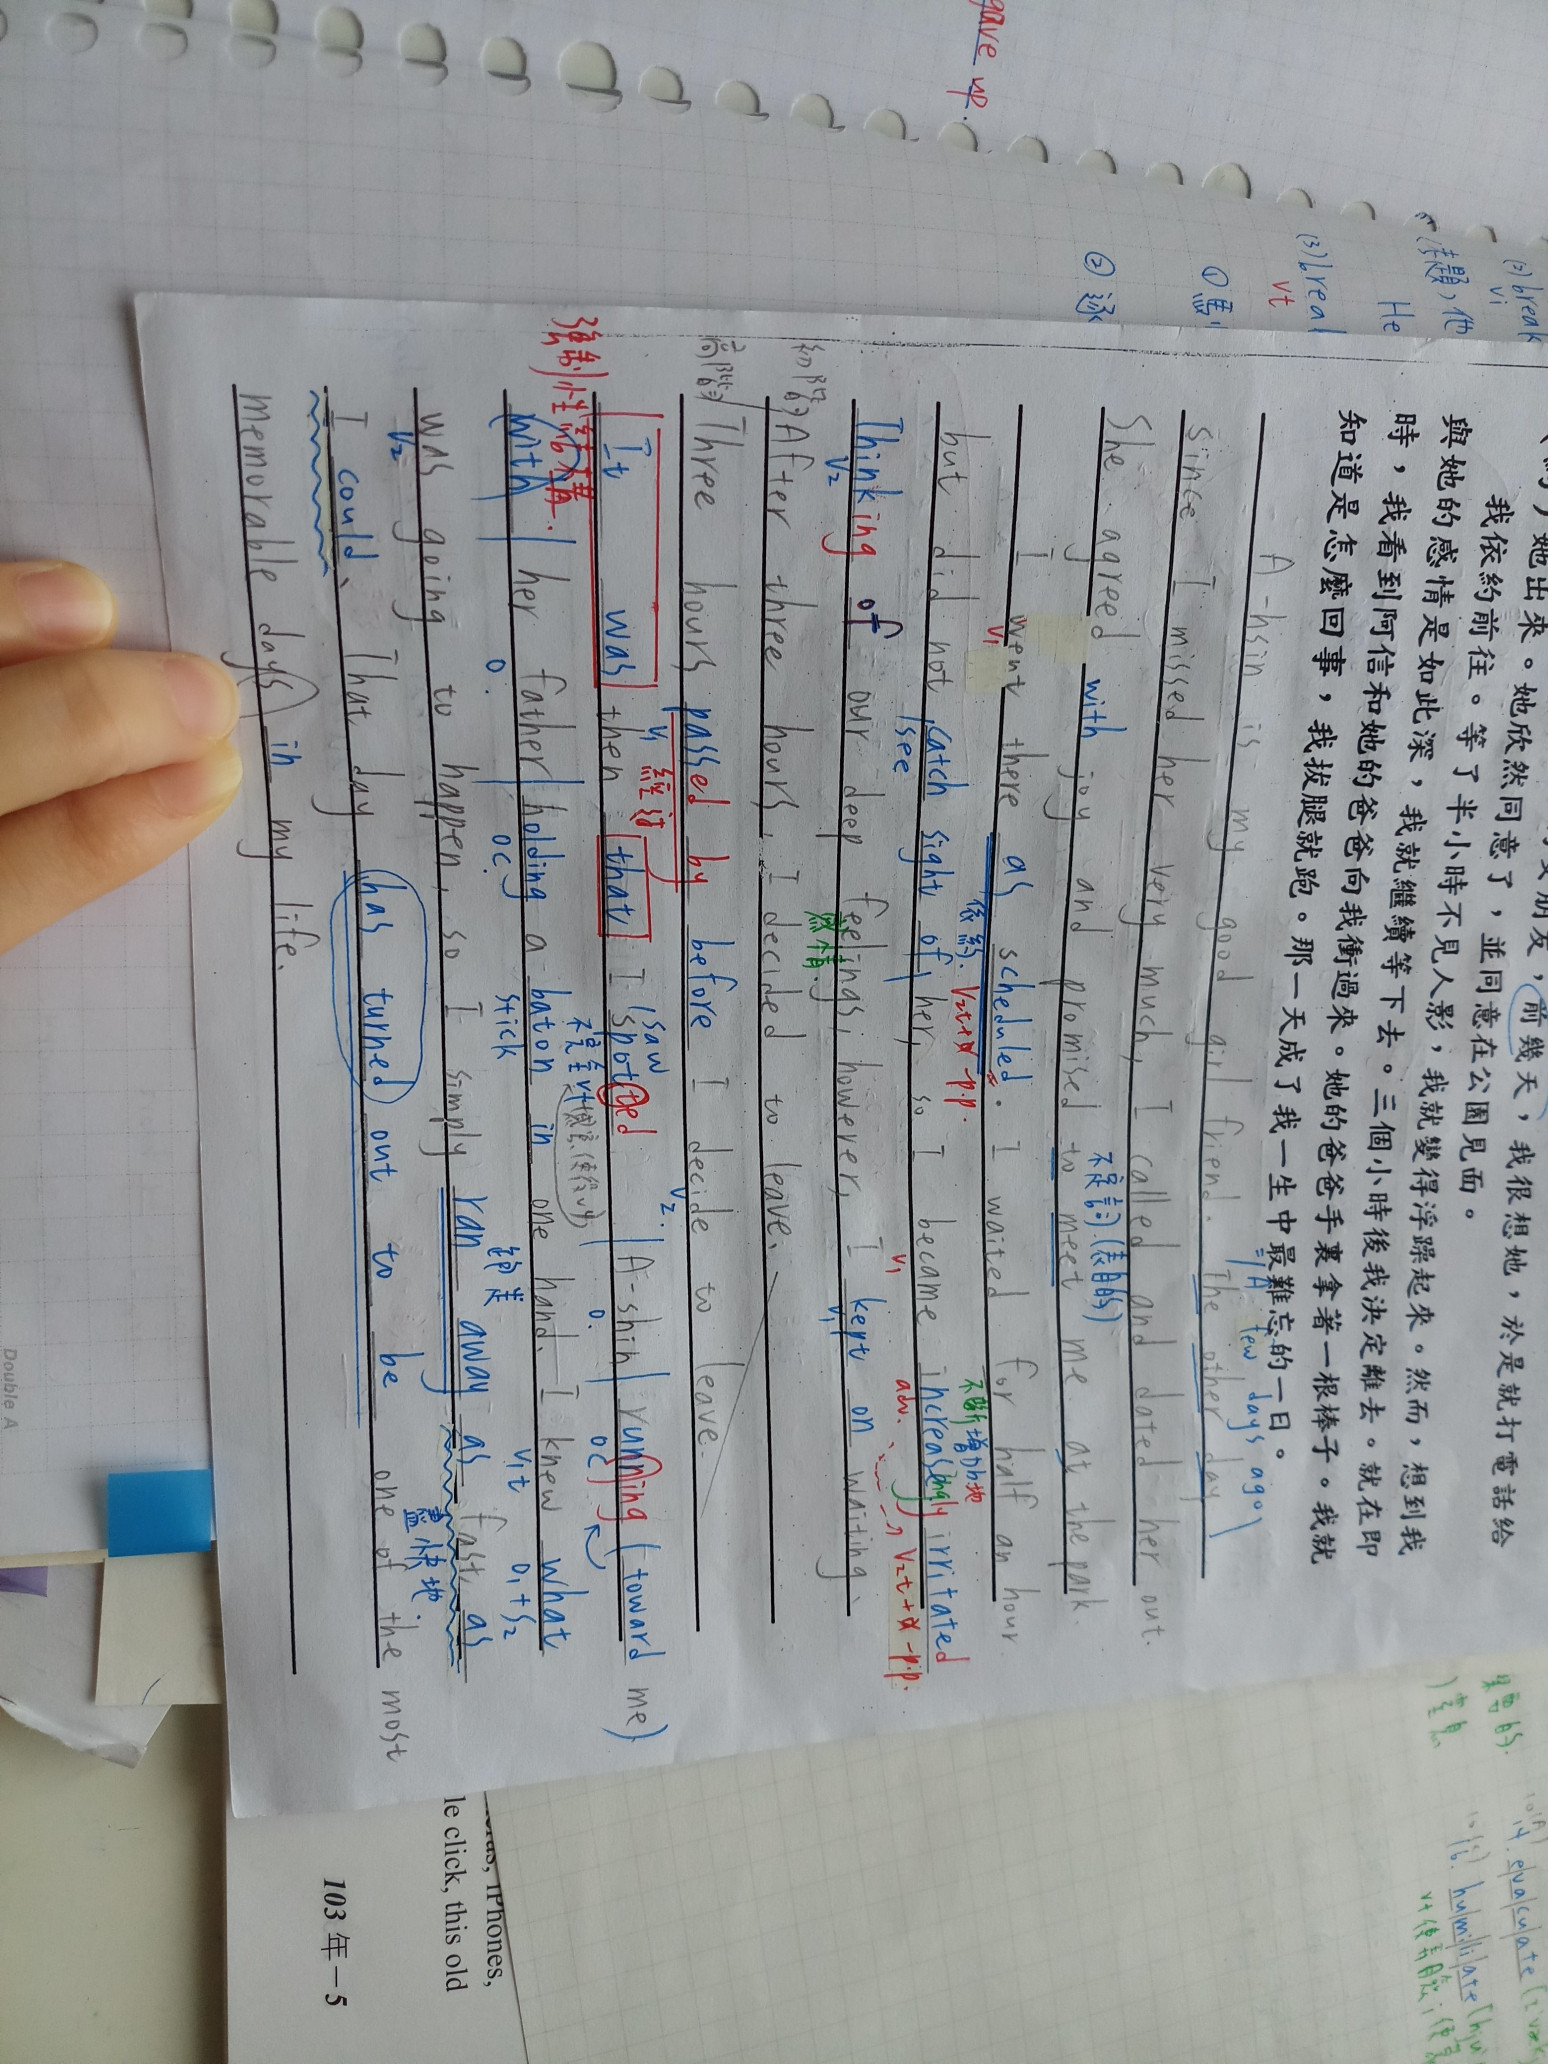 gave up.
(2) break
vi
他
He
(3) break
vt
①
②
她出來。她欣然同意了，並同意在公園見面。
朋友，前幾天，我很想她，於是就打電話給
我依約前往。等了半小時不見人影，我就變得浮躁起來。然而，想到我
與她的感情是如此深，我就繼續等下去。三個小時後我決定離去。就在即
時，我看到阿信和她的爸爸向我衝過來。她的爸爸手裏拿著一根棒子。我就
知道是怎麼回事，我拔腿就跑。那一天成了我一生中最難忘的一日。
= A few days ago
A-hsin is my good girl friend. The other day
since I missed her very much, I called and dated her out.
不定詞.(表目的)
She agreed with joy and promised to meet me at the park.
I went there as scheduled. I waited for half an hour
v1
依約. V2t+x-p.p.
不斷增加地
but did not catch sight of her, so I became increasingly irritated
see
v1
adv.
V2t+x-p.p.
Thinking of our deep feelings, however, I kept on waiting.
V2
感情.
V1
初階 After three hours, I decided to leave.
高階 Three hours passed by before I decide to leave.
V1 經過
V2.
It was then that I spotted A-shin running (toward me)
saw
o.
oc
強制性結構.
with her father holding a baton in one hand. I knew what
o.
oc.
stick
vt
o1+s2
was going to happen, so I simply ran away as fast as
V2
盡快地.
I could. That day has turned out to be one of the most
memorable days in my life.
Double A
iPhones,
le click, this old
103 年－5
evacuate
humiliate